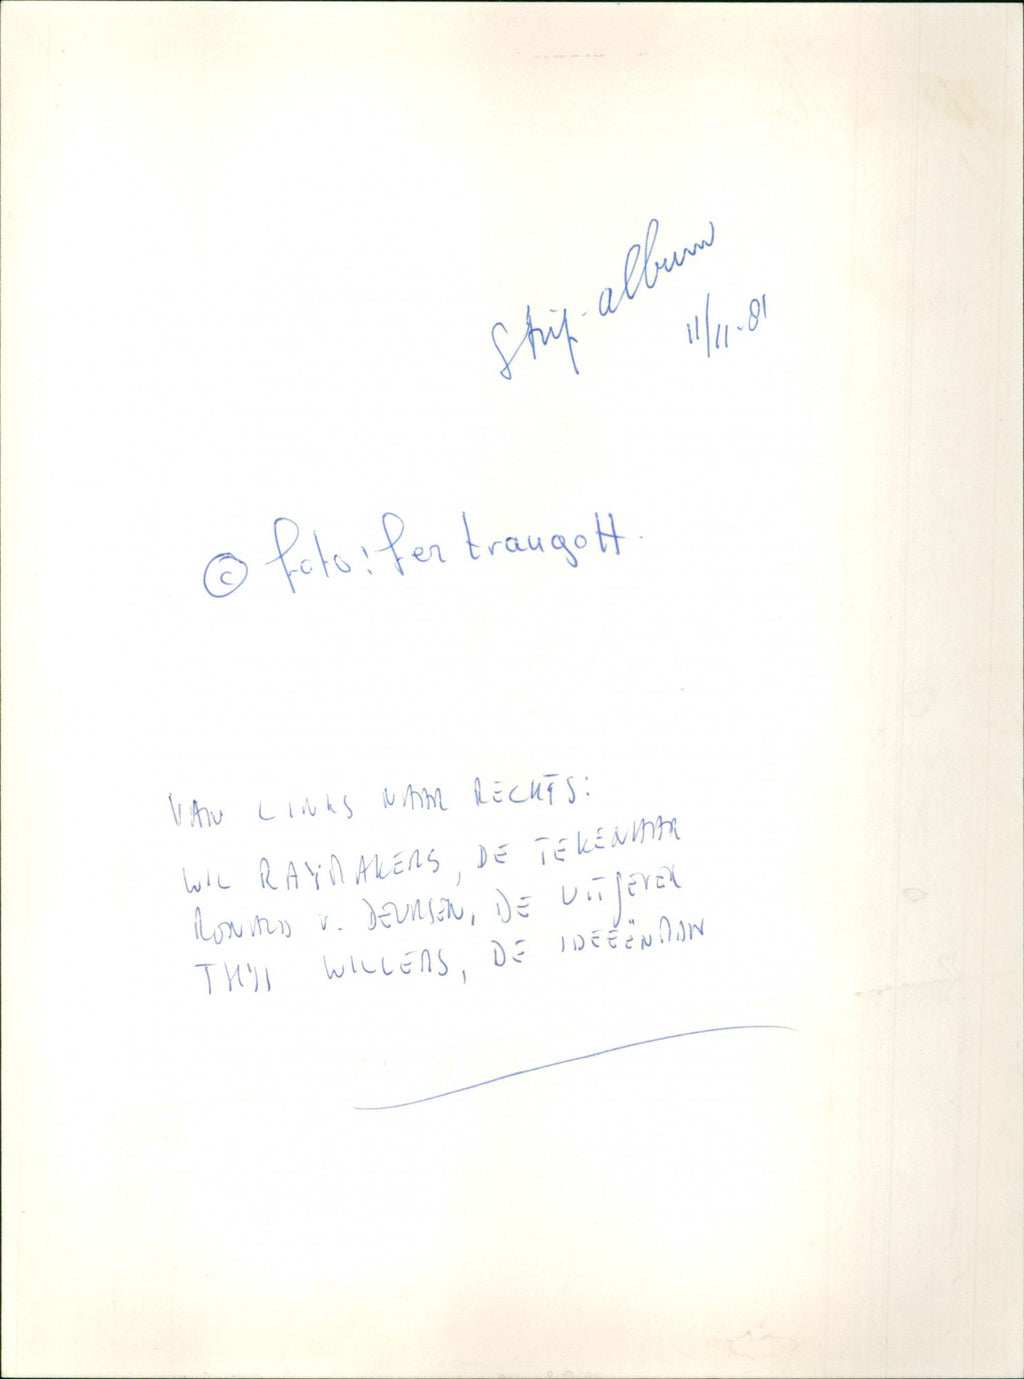 Strip-album
11/11-81
© foto: fer traugott.
VAN LINKS NAAR RECHTS:
WIL RAYMAKERS, DE TEKENAAR
RONALD V. DEURSEN, DE UITGEVER
THIJ WILLEMS, DE IDEEËNMAN